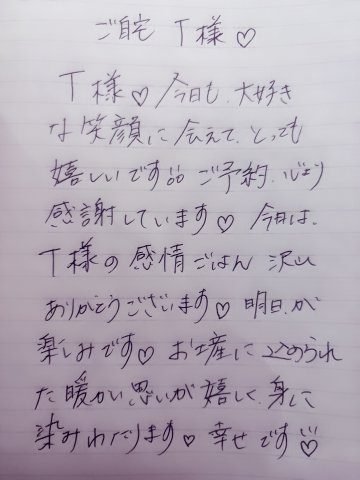 ご自宅 T様♡
T様♡今日も、大好き
な笑顔に会えて、とっても
嬉しいです。ご予約、心より
感謝しています♡ 今日は、
T様の感情ごはん 沢山
ありがとうございます♡ 明日が
楽しみです♡ お土産に込められ
た暖かい思いが嬉しく、身に
染みわたります♡ 幸せです♡